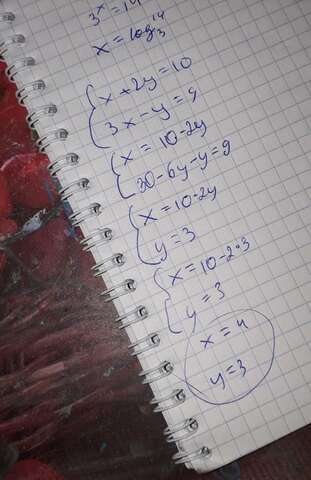 3ˣ = 14
x = log₃14
{ x + 2y = 10
3x - y = 9
{ x = 10 - 2y
30 - 6y - y = 9
{ x = 10 - 2y
y = 3
{ x = 10 - 2·3
y = 3
x = 4
y = 3